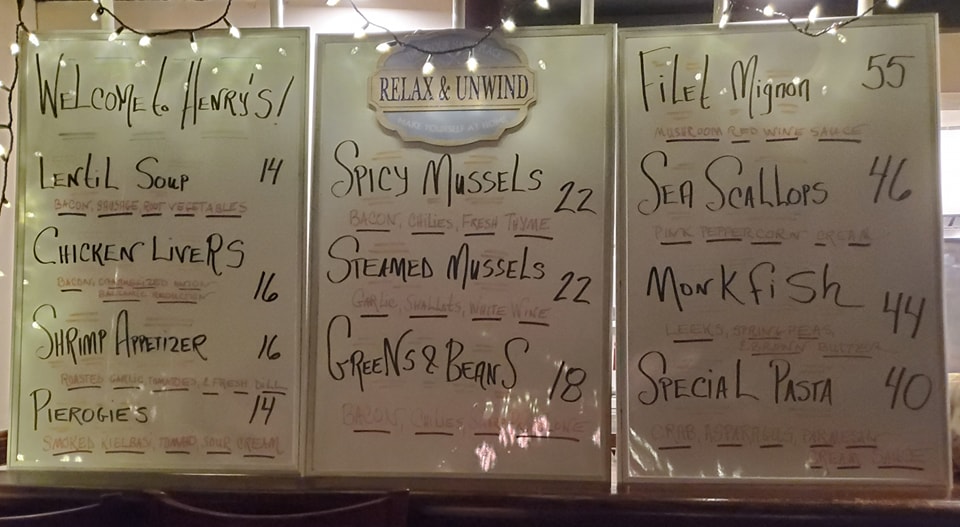 WELCOME to HENRY'S!
LENTIL SOUP 14
BACON, SAUSAGE, ROOT VEGETABLES
CHICKEN LIVERS 16
BACON, CARAMELIZED ONION
BALSAMIC REDUCTION
SHRIMP APPETIZER 16
ROASTED GARLIC, TOMATOES, & FRESH DILL
PIEROGIE'S 14
SMOKED KIELBASI, TOMATO, SOUR CREAM
RELAX & UNWIND
MAKE YOURSELF AT HOME
SPICY MUSSELS 22
BACON, CHILIES, FRESH THYME
STEAMED MUSSELS 22
GARLIC, SHALLOTS, WHITE WINE
GREENS & BEANS 18
BACON, CHILIES,
FILET MIGNON 55
MUSHROOM RED WINE SAUCE
SEA SCALLOPS 46
PINK PEPPERCORN CREAM
MONKFISH 44
LEEKS, SPRING PEAS,
BROWN BUTTER
SPECIAL PASTA 40
CRAB, ASPARAGUS, PARMESAN
CREAM SAUCE